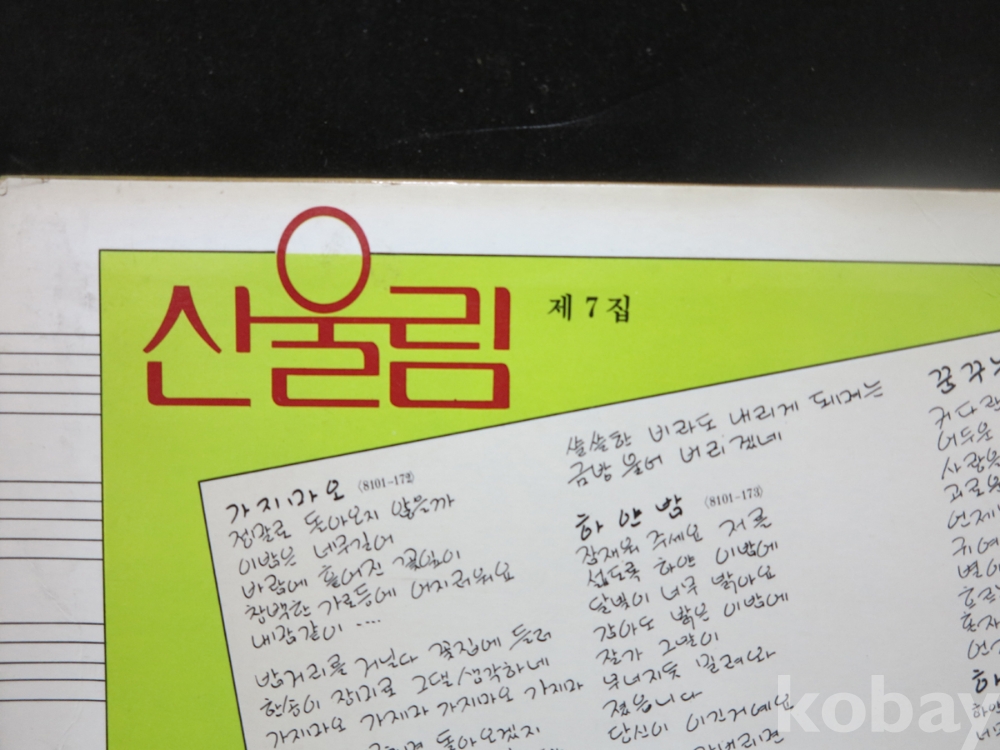 산울림
제 7 집
가지마오 (8101-172)
정말로 돌아오지 않을까
이밤은 너무길어
바람에 흩어진 꽃잎이
창백한 가로등에 어지러워요
내맘같이 ....
밤거리를 거닐다 꽃집에 들러
한송이 장미로 그댈 생각하네
가지마오 가지마 가지마오 가지마
돌아오겠지
쓸쓸한 비라도 내리게 되며는
금방 울어 버리겠네
하얀밤 (8101-173)
잠재워 주세요 저를
섧도록 하얀 이밤에
달빛이 너무 밝아요
감아도 밝은 이밤에
잘가 그말이
무너지듯 밀려와
졌읍니다
당신이 이긴거예요
꿈꾸는
커다란
어두운
사랑은
괴로운
언제
귀여
별이
흐르
혼자
언
하
하얀
kobay